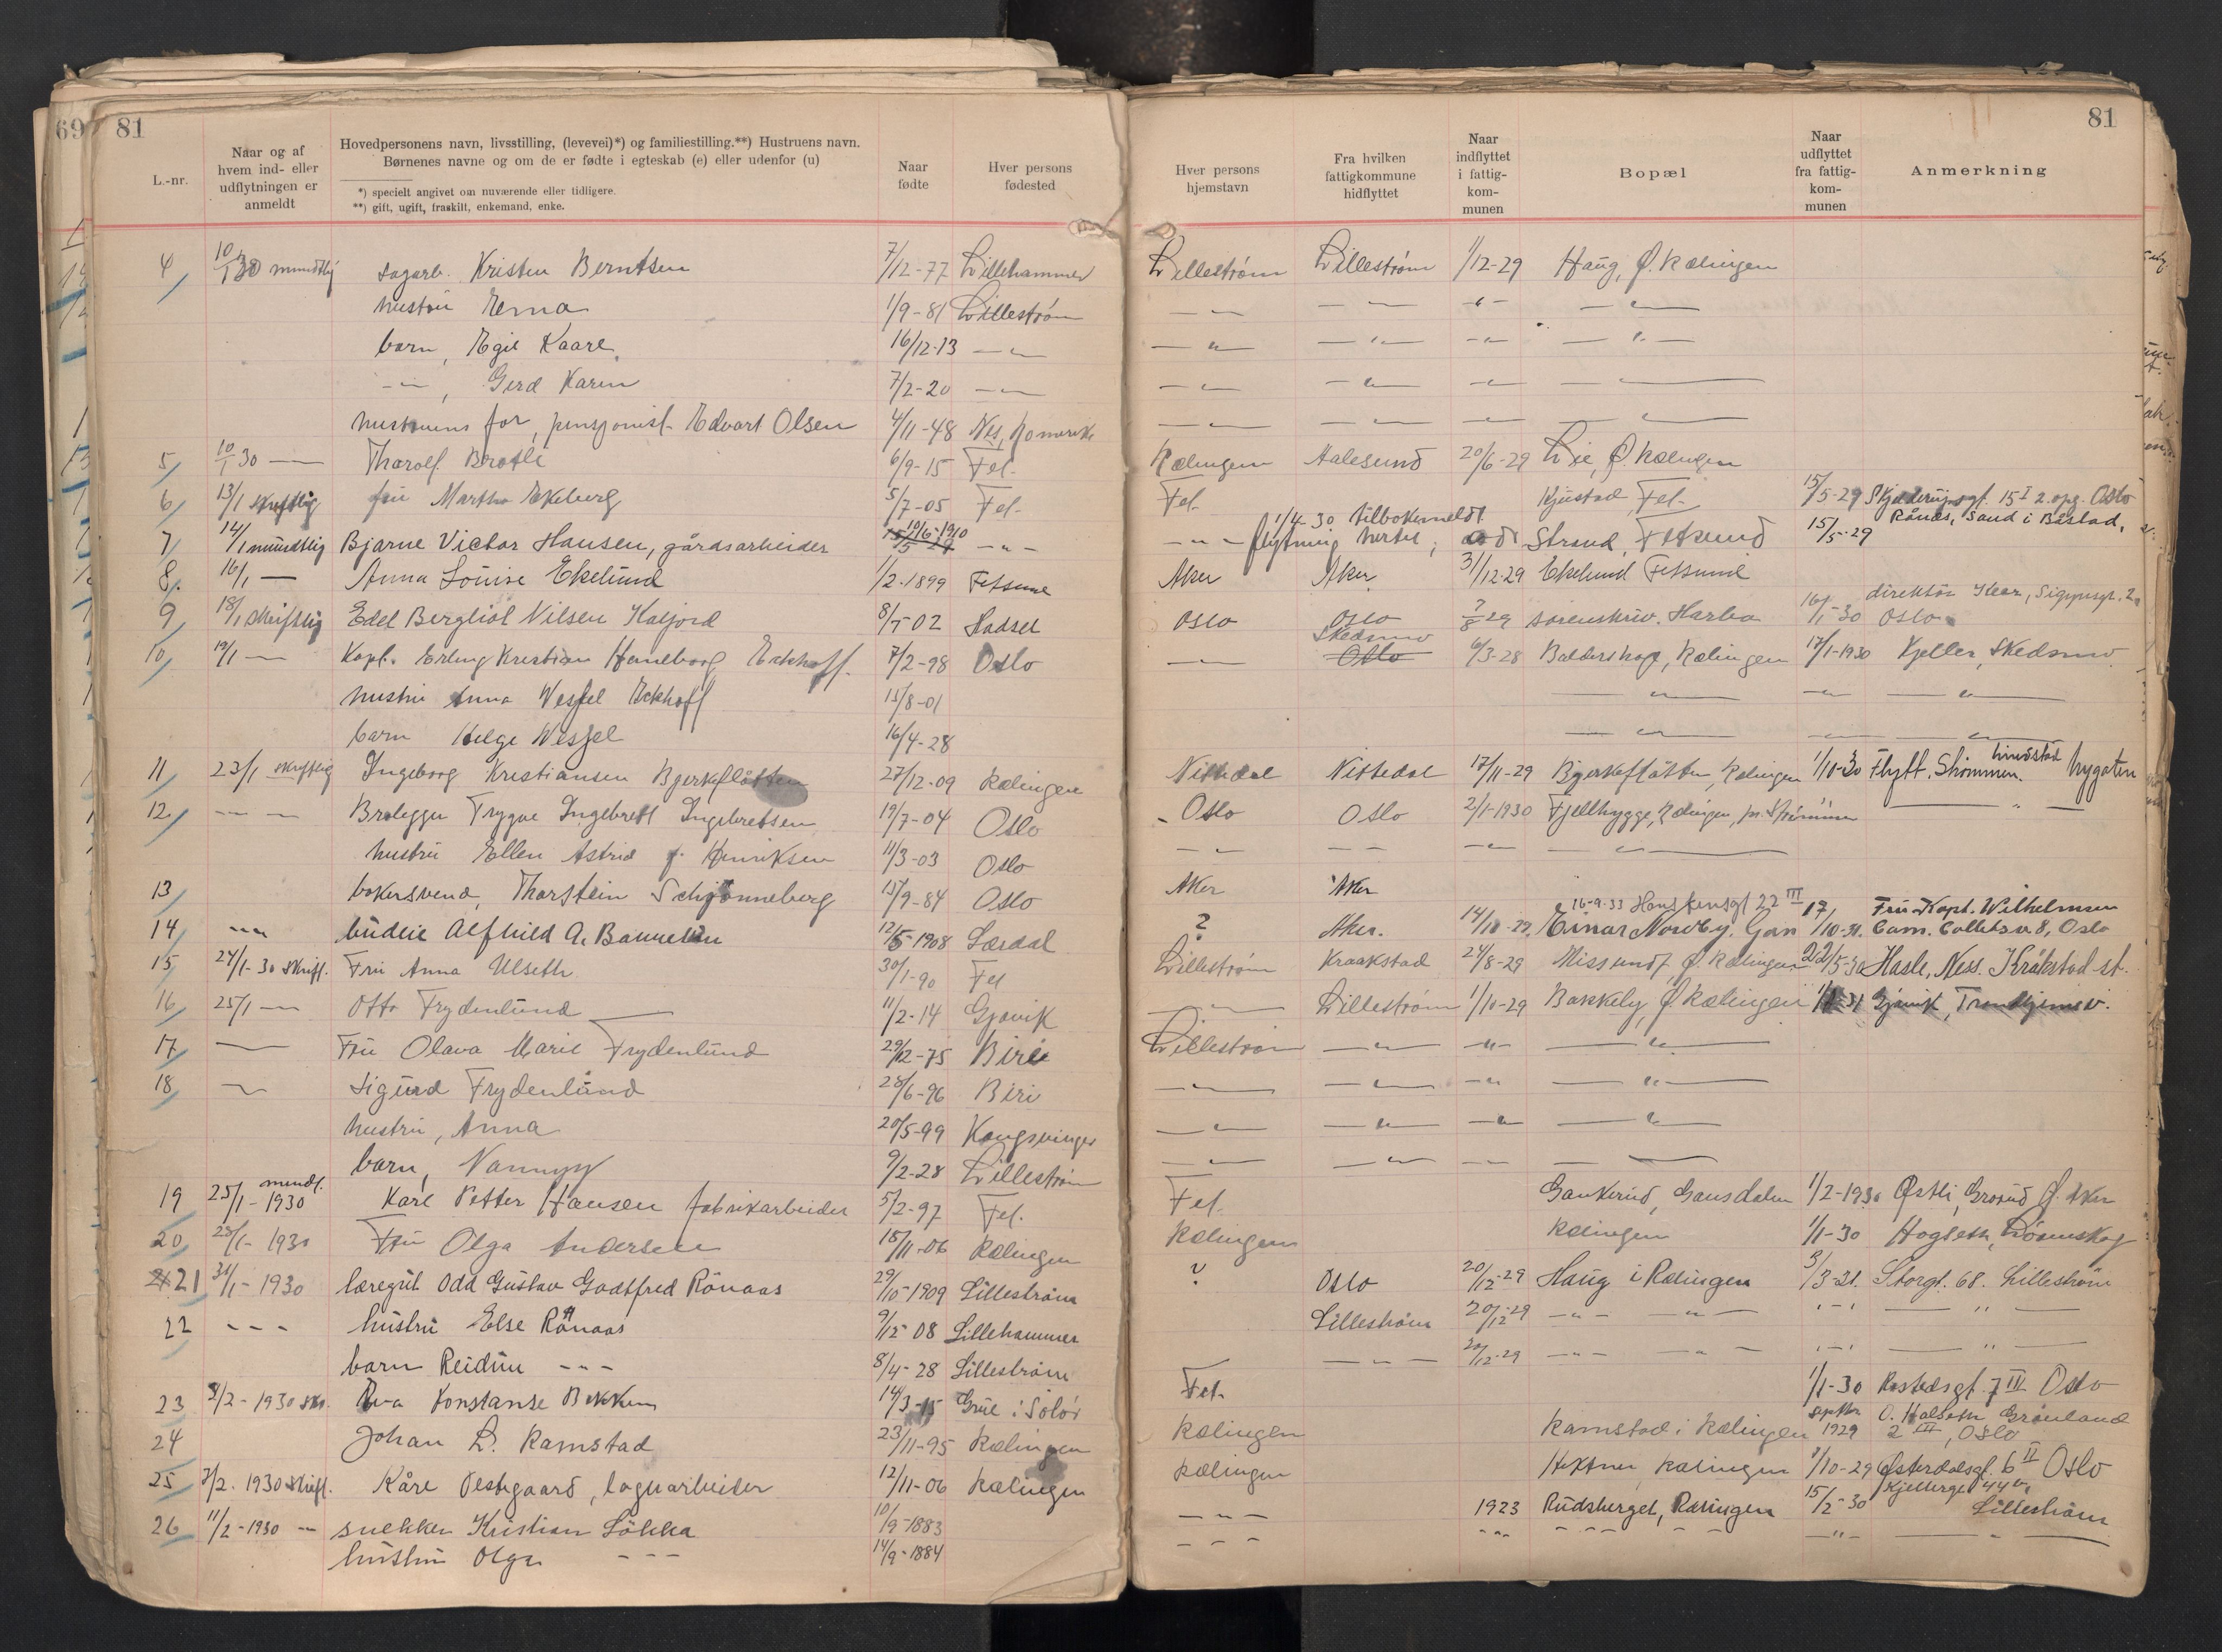 69 81
L.-nr.
Naar og af hvem ind- eller udflytningen er anmeldt
Hovedpersonens navn, livsstilling, (levevei)*) og familiestilling.**) Hustruens navn.
Børnenes navne og om de er fødte i egteskab (e) eller udenfor (u)
*) specielt angivet om nuværende eller tidligere.
**) gift, ugift, fraskilt, enkemand, enke.
Naar fødte
Hver persons fødested
81
Hver persons hjemstavn
Fra hvilken fattigkommune hidflyttet
Naar indflyttet i fattig-kom-munen
Bopæl
Naar udflyttet fra fattig-kom-munen
Anmerkning
4 10/1 30 mundtlig sagarb. Kristen Berntsen 7/12-77 Lillehammer Lillestrøm Lillestrøm 1/12-29 Haug, Ø. Rælingen
hustru Erna 1/9-81 Lillestrøm
barn, Egil Kaare 16/12-13
Gerd Karin 7/2-20
hustruens far, pensjonist Edvart Olsen 4/11-48 Nes, Romerike
5 10/1 30 Tharolf Bråtle 6/9-15 Fet Rælingen Aalesund 20/6-29 Lie, Ø. Rælingen
6 13/1 skriftlig fru Martha Ekeberg 5/7-05 Fet Fet Kjustad, Fet 15/5-29 15 I 2. opg. Oslo
7 14/1 mundtlig Bjarne Victor Hansen, gårdsarbeider 10/6-1910 1/4-30 tilbakemeldt flytning Strand, Fetsund 15/5-29 Rånås, Sand i Båstad,
8. 16/1 Anna Louise Ekelund 1/2-1899 Fetsund Aker Aker 31/12-29 Ekelund Fetsund
9 18/1 skriftlig Edel Bergliot Nilsen Kalfjord 8/5-02 Hadsel Oslo Oslo 7/8 29 sorenskriv. Harbo 16/1-30 direktør Oslo
10 19/1 Kapt. Erling Kristian Haneborg Eckhoff 7/2-98 Oslo Skedsmo Oslo 6/3-28 Baldershage, Rælingen 17/1-1930 Kjeller, Skedsmo
hustru Anna Wessel Eckhoff 15/8-01
barn Helge Wessel 16/4-28
11 23/1 skriftlig Ingeborg Kristiansen Bjerkeflåtten 27/12-09 Rælingen Nittedal Nittedal 17/11-29 Bjerkeflåtten, Rælingen 1/10-30 Flytt. Strømmen
12 Brolegger Trygve Ingebrett Ingebretsen 19/7-04 Oslo Oslo Oslo 2/1-1930 Fjellhygge, Rælingen, pr. Strømmen
hustru Ellen Astrid f. Henriksen 11/3-03 Oslo
13 bakersvend, Tharstein Schjønneberg 15/9-84 Oslo Aker Aker
16-9-33 22 III
14 budeie Alfhild A. 12/5-1908 Lærdal ? Aker. 14/10-29 Einar Nordby, Gan 17/10-31. Fru Kapt. Wilhelmsen Cam. Colletsv 8, Oslo
15 24/1-30 skriftl. Fru Anna Ulseth 30/1-90 Fet Lillestrøm Kraakstad 24/8-29 Missund, Ø. Rælingen 22/5-30 Hasle, Ness. Kråkstad st.
16 25/1 Otto Frydenlund 11/2-14 Gjøvik Lillestrøm 1/10-29 Bakkely, Ø. Rælingen Gjøvik, Trondhjemsv.
17 Fru Olava Marie Frydenlund 29/12-75 Biri Lillestrøm
18 Sigurd Frydenlund 28/6-96 Biri
hustru, Anna 20/5-99 Kongsvinger
barn, Nanny 9/2-28 Lillestrøm
19 25/1-1930 mundl. Karl Petter Hansen fabrikarbeider 5/2-97 Fet. Fet. Gankerud, Gansdalen 1/2-1930 Østli, Grorud Ø. Aker
20 28/1-1930 Fru Olga Andersen 15/11-06 Rælingen Rælingen Rælingen 1/1-30 Hogseth, Lørenskog
21 31/1-1930 læregut Odd Gustav Godtfred Rönaas 29/10-1909 Lilleström ? Oslo 20/12-29 Haug i Rælingen 3/3-31. Storgt. 68. Lilleström
22 hustru Else Rönaas 9/12 08 Lillehammer Lilleström 20/12-29
barn Reidun 8/4-28 Lilleström 20/12-29
23 3/2-1930 skr. Eva Konstanse Bekken 14/3-15 Grue i Solør Fet 1/1-30 Rostedsgt. 7 III Oslo
24 Johan L. Ramstad 23/11-95 Rælingen Rælingen Ramstad i Rælingen septbr 1929 O. Halseth Grønland 2 III, Oslo
25 7/2. 1930 skriftl. Kåre Østegaard, lagerarbeider 12/11-06 Rælingen Rælingen Hektner, Rælingen 1/10-29 Østerdalsgt. 6 II Oslo
26 11/2-1930 snekker Kristian Løkka 10/9-1883 1923 Rudsberget, Rælingen 15/2-30 Kjellergt 44 Lilleström
hustru Olga 14/9-1884